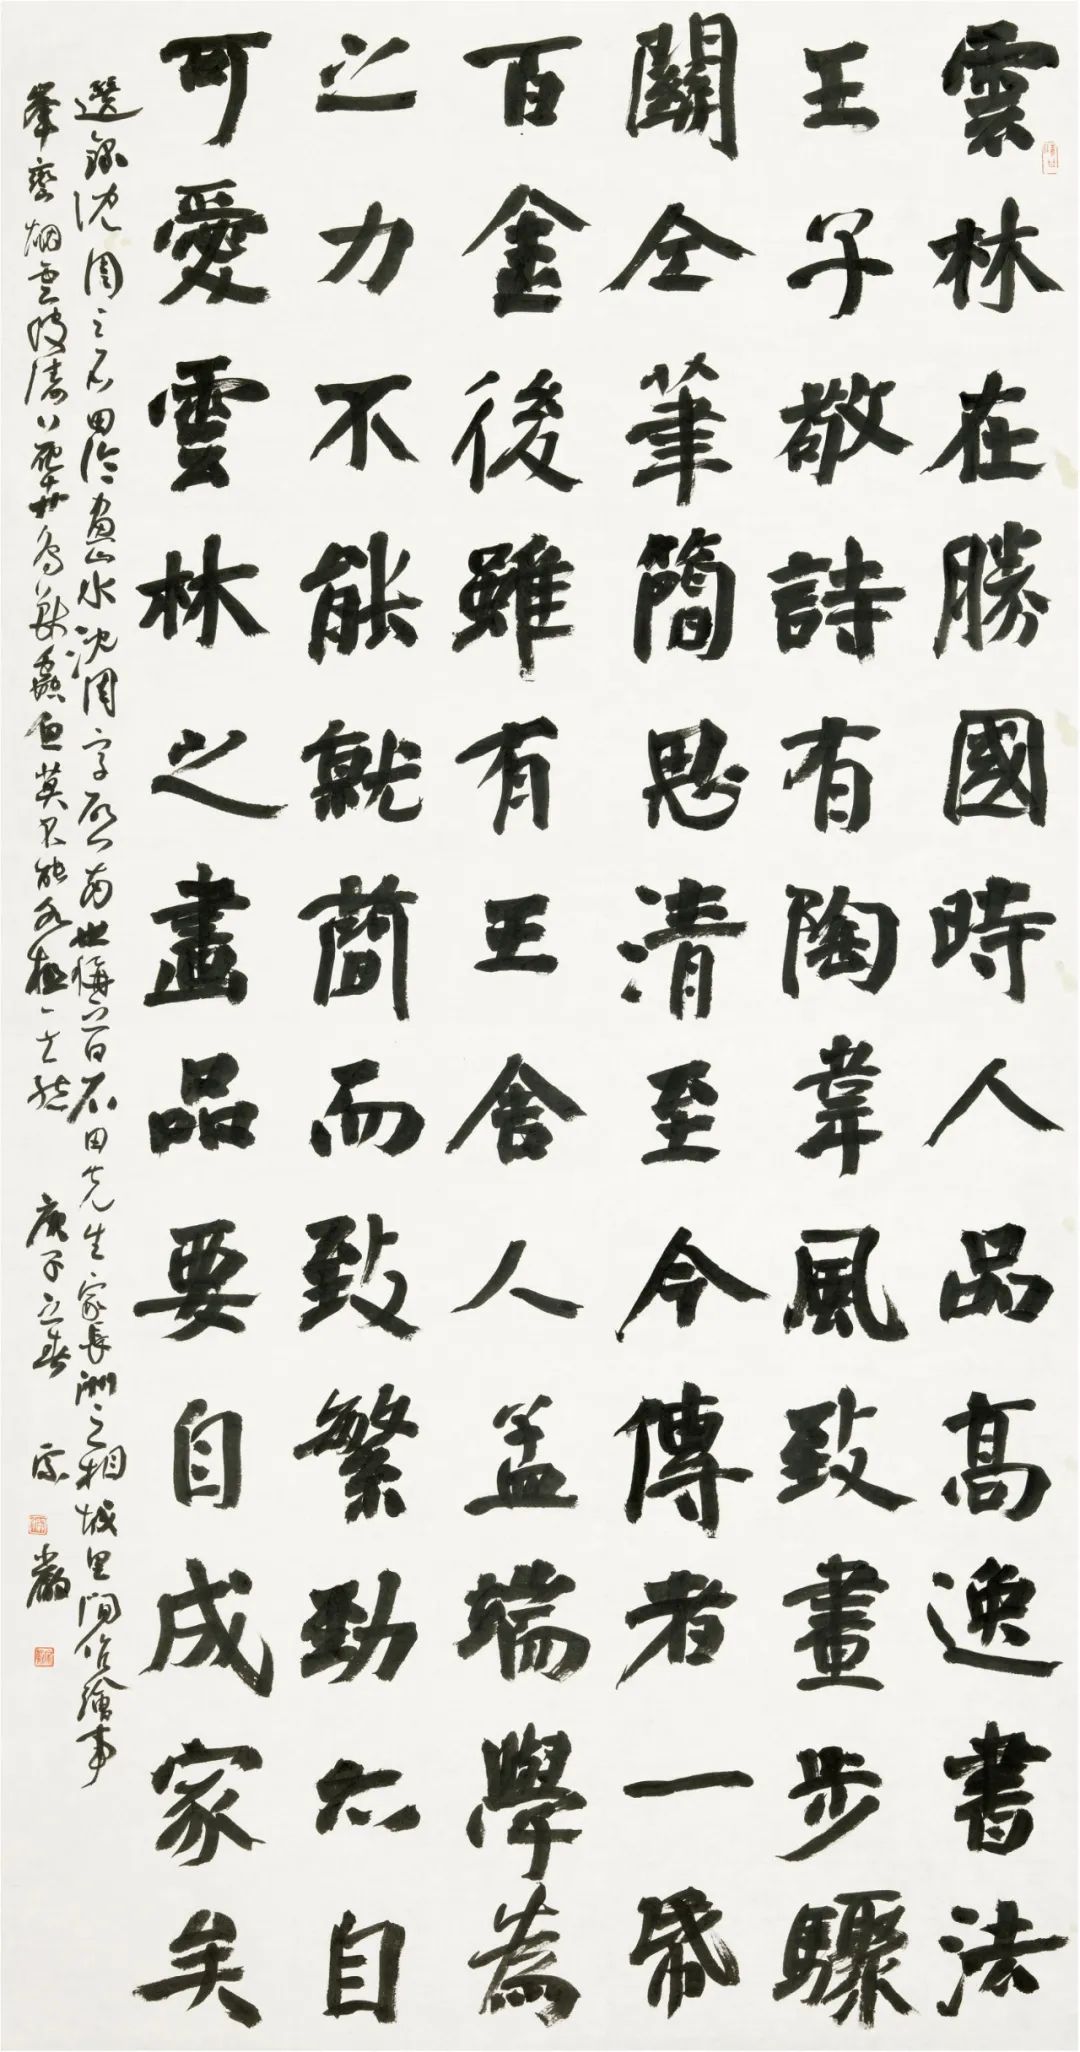 雲林在勝國時人品高逸書法
王子敬詩有陶韋風致畫步驟
關仝筆簡思清至今傳者一帋
百金後雖有王舍人孟端學為
之力不能就簡而致繁勁亦自
可愛雲林之畫品要自成家矣
選錄沈周之石田論畫山水沈周字啟南世稱石田先生家長洲之相城里間作繪事
峯巒烟雲波濤花卉鳥獸蟲魚莫不能各極其態 庚子立春 嚴